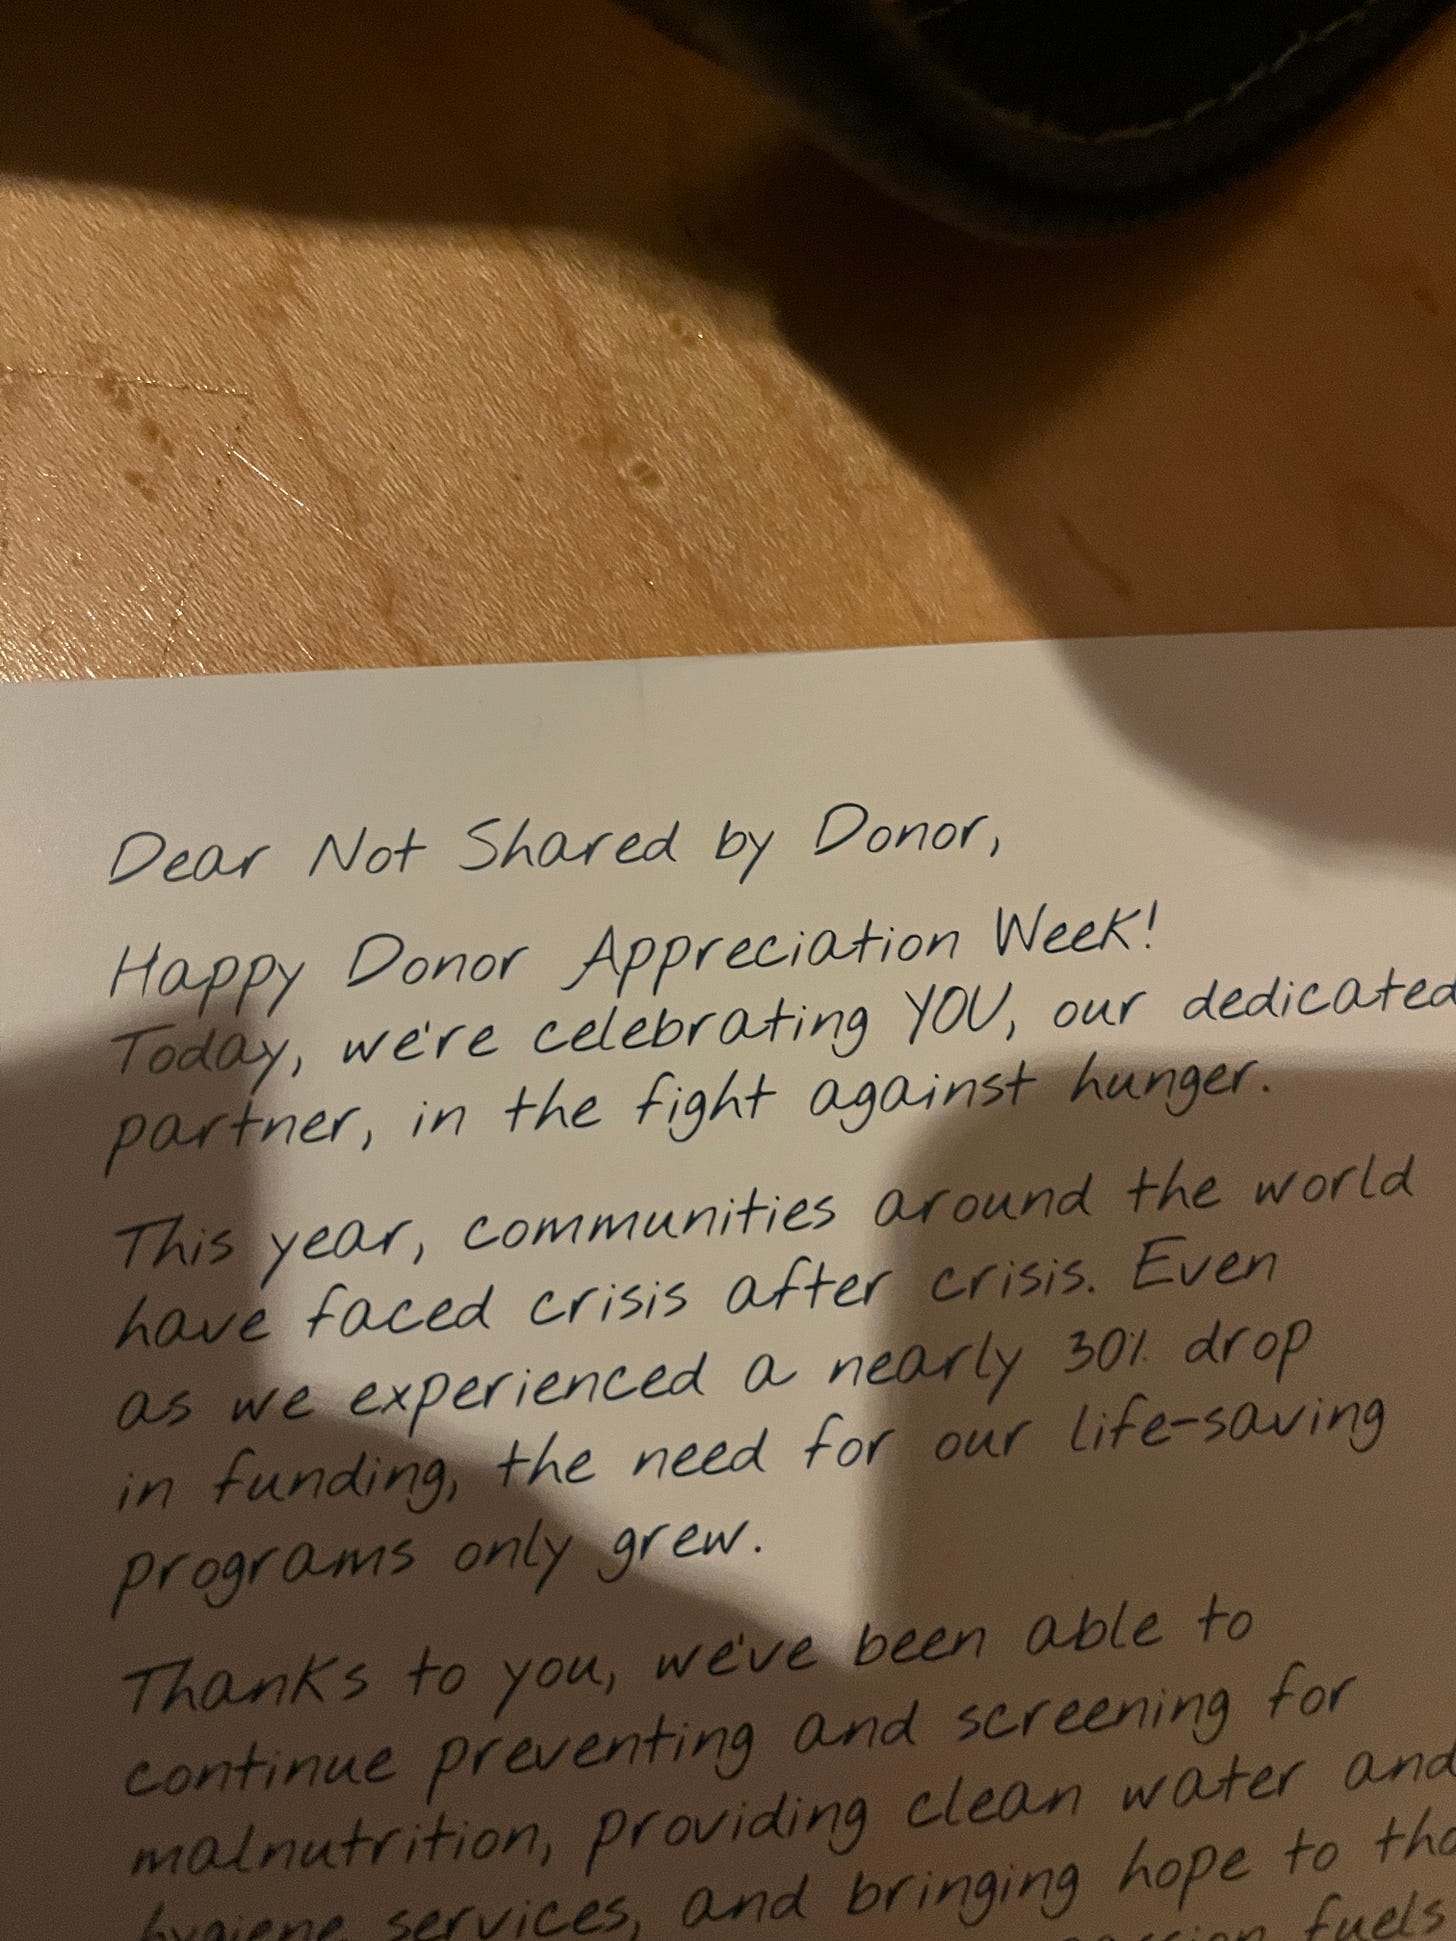 Dear Not Shared by Donor,
Happy Donor Appreciation Week!
Today, we're celebrating YOU, our dedicated
partner, in the fight against hunger.
This year, communities around the world
have faced crisis after crisis. Even
as we experienced a nearly 30% drop
in funding, the need for our life-saving
programs only grew.
Thanks to you, we've been able to
continue preventing and screening for
malnutrition, providing clean water and
hygiene services, and bringing hope to
fuels